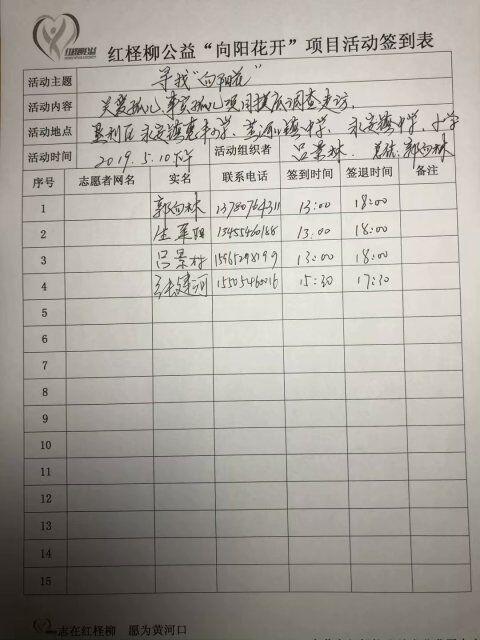 红柽柳公益
红柽柳公益“向阳花开”项目活动签到表
活动主题 寻找“向阳花”
活动内容 关爱孤儿、事实孤儿项目摸底调查走访.
活动地点 垦利区永安镇惠丰小学、黄河口镇中学、永安镇中学、小学
活动时间 2019.5.10下午 活动组织者 吕景林. 总队:郭向林
序号 志愿者网名 实名 联系电话 签到时间 签退时间 备注
1 郭向林 13780764311 13:00 18:00
2 13455460188 13:00 18:00
3 吕景林 15965298199 13:00 18:00
4 张建河 15505460016 15:30 17:30
5
6
7
8
9
10
11
12
13
14
15
志在红柽柳 愿为黄河口